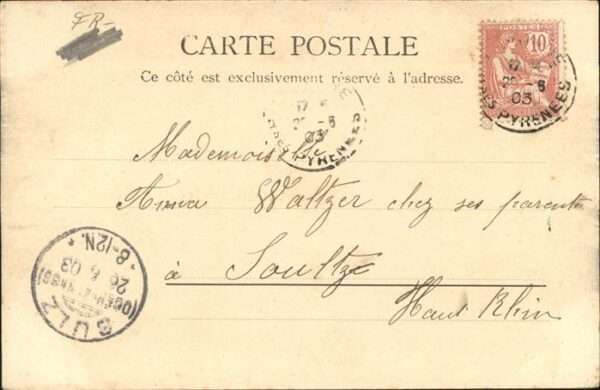 FR-
CARTE POSTALE
Ce côté est exclusivement réservé à l'adresse.
POSTES
10
03
PYRENEES
03
PYRENEES
Mademoiselle
Anna Waltzer chez ses parents
à Soultz
Haut Rhin
SULZ
(OBER-ELSASS)
26 6 03
8-12N.